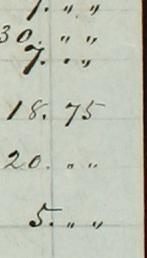 7. " "
30. " "
7. " "
18. 75
20. " "
5. " "